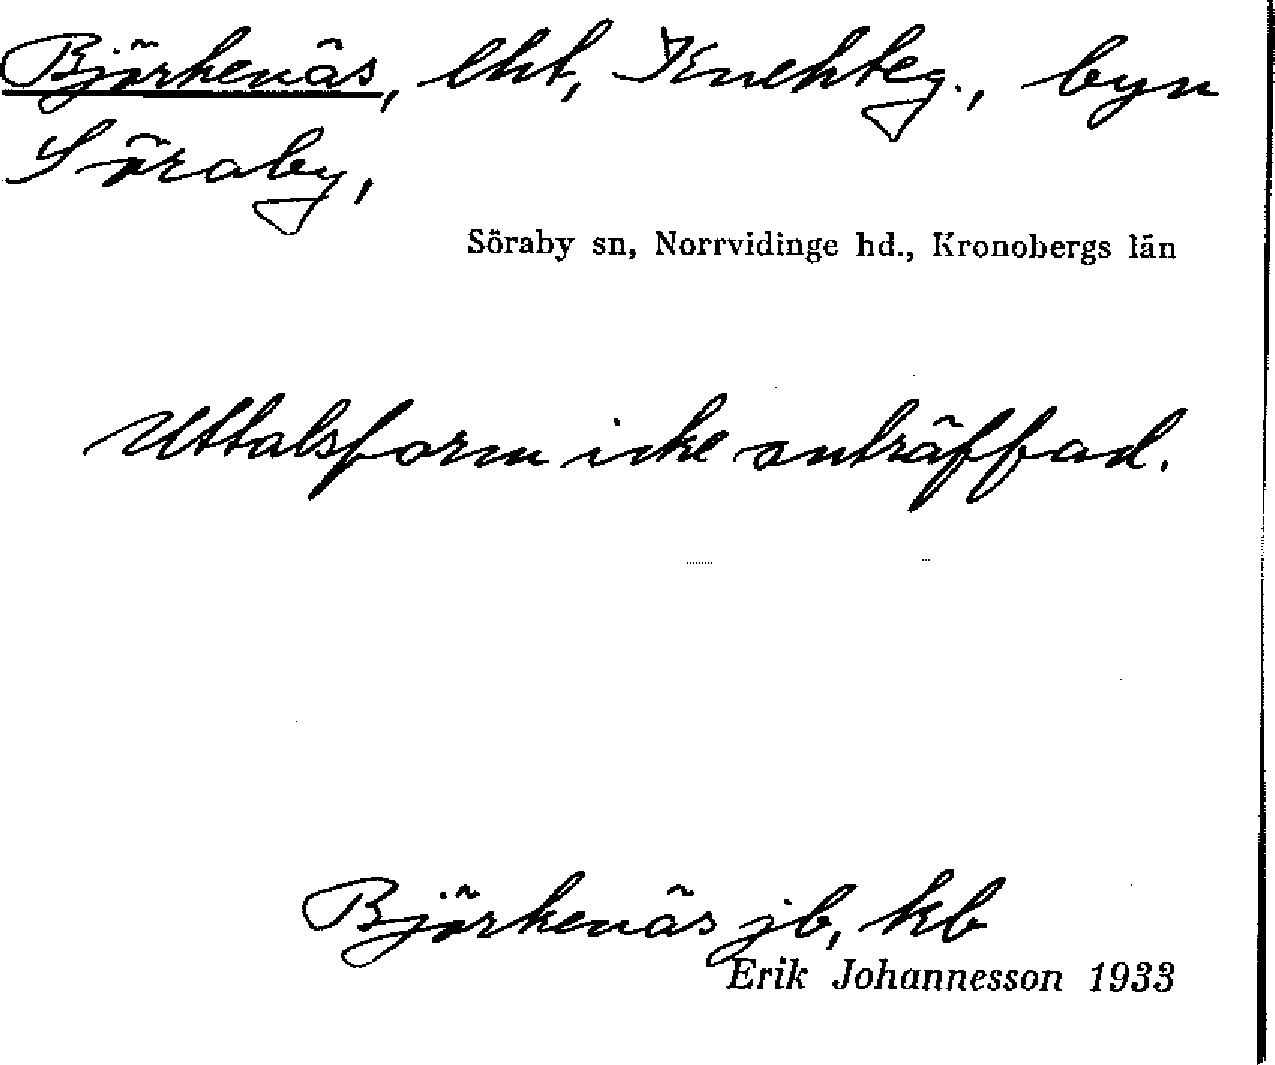 Björkenäs, lht, Knehteg., byn
Söraby,
Söraby sn, Norrvidinge hd., Kronobergs län
Uttalsform icke anträffad.
Björkenäs jb, kb
Erik Johannesson 1933